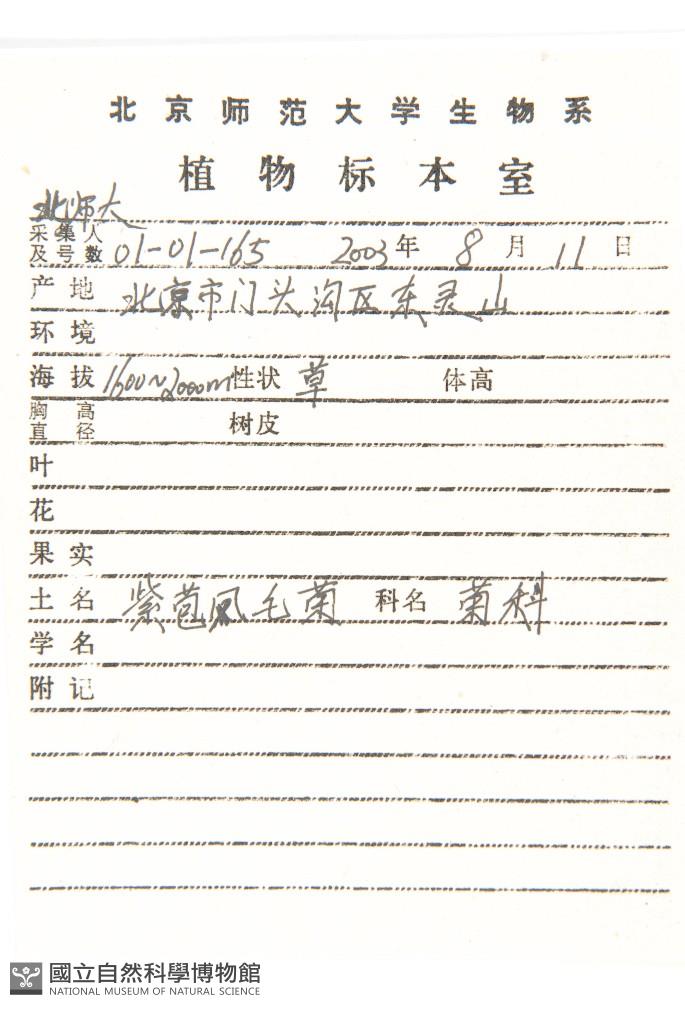 北京师范大学生物系
植物标本室
北师大
采集人及号数 01-01-165 2003年 8月 11日
产地 北京市门头沟区东灵山
环境
海拔 1600~2000m 性状 草 体高
胸高直径 树皮
叶
花
果实
土名 紫苞风毛菊 科名 菊科
学名
附记
國立自然科學博物館
NATIONAL MUSEUM OF NATURAL SCIENCE